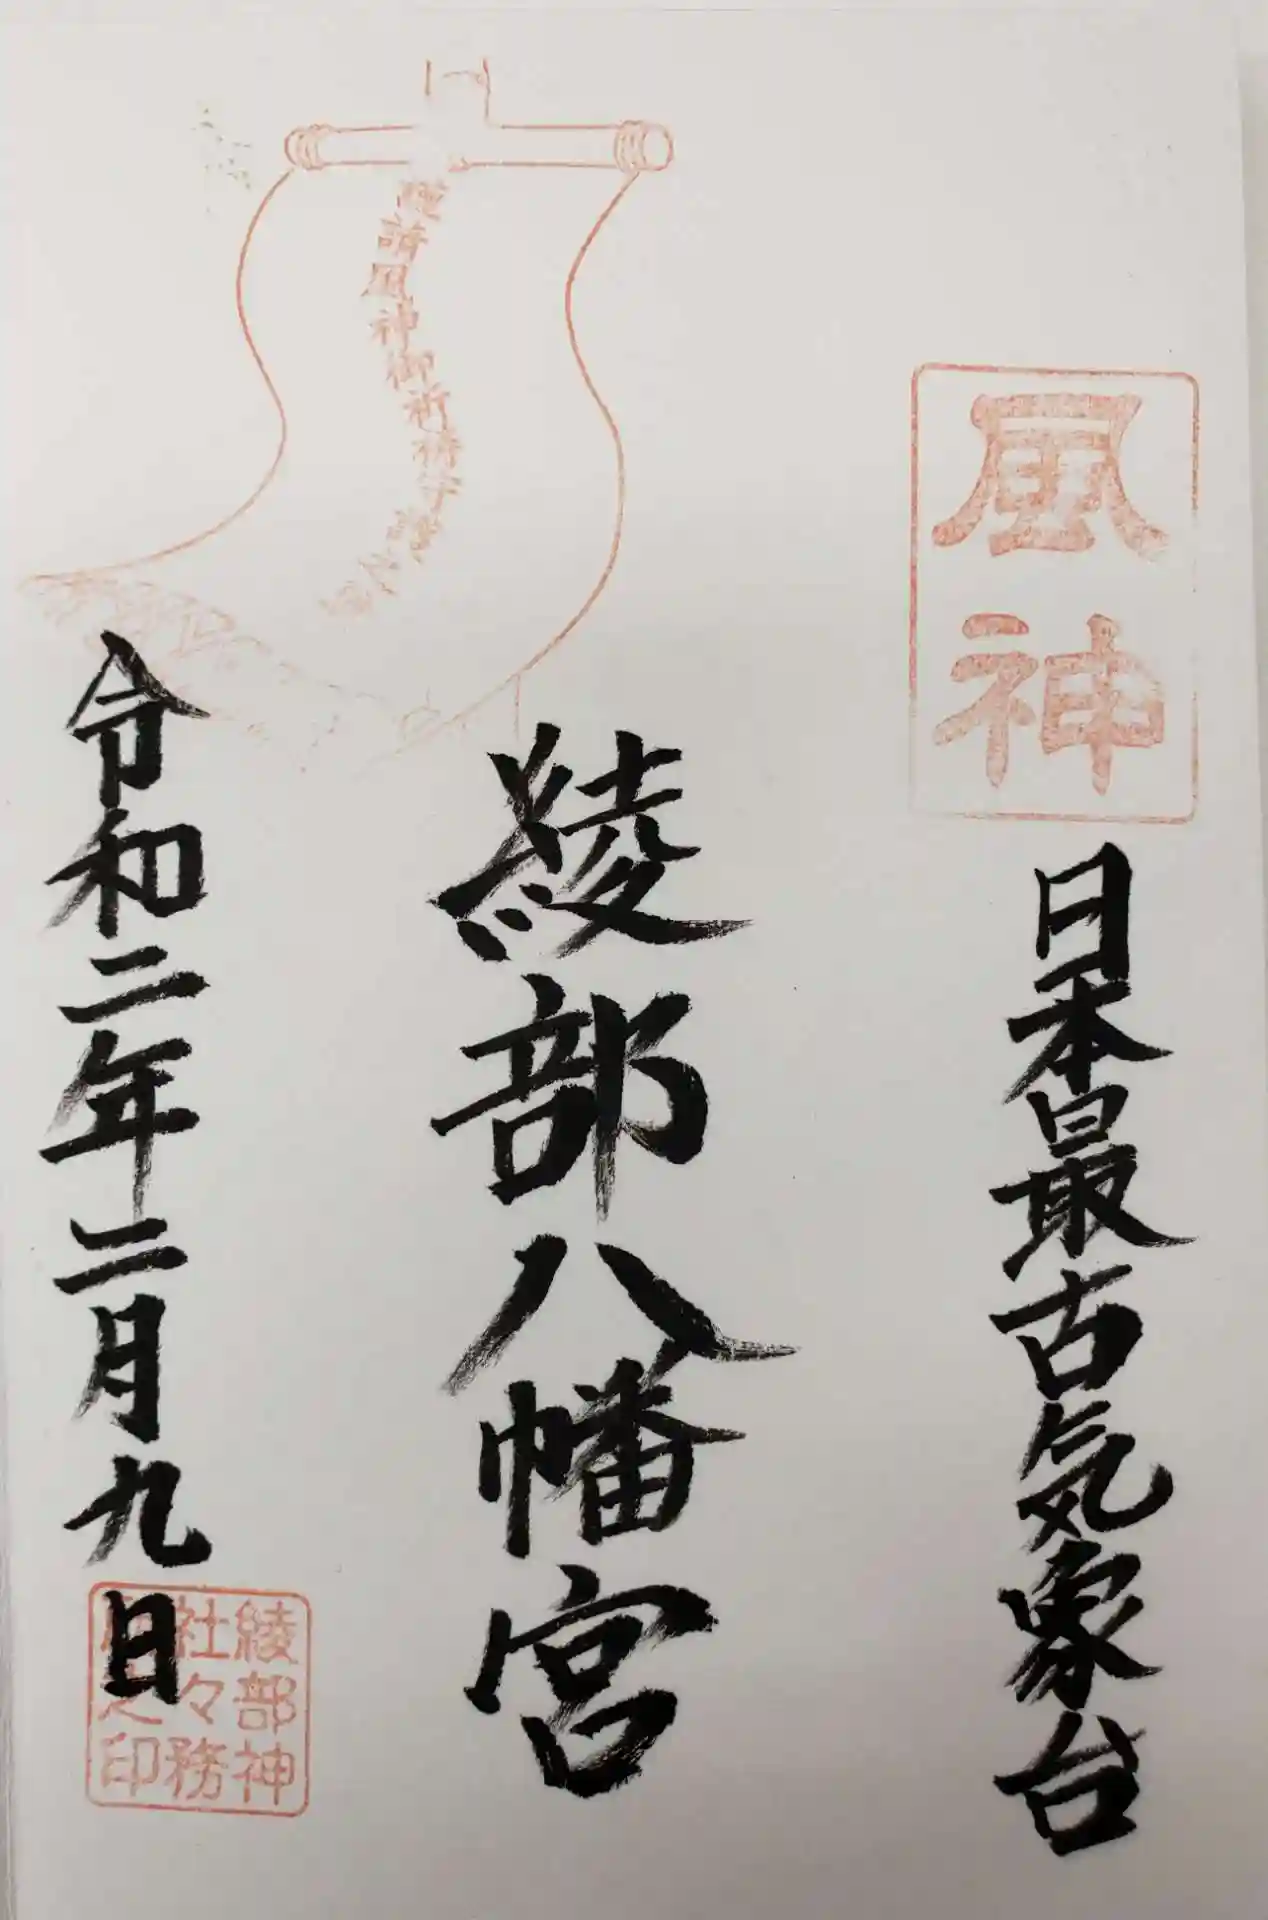 風神
日本最古気象台
綾部八幡宮
謹請風神御祈祷守護之
令和二年二月九日
綾部神
社々務
之印